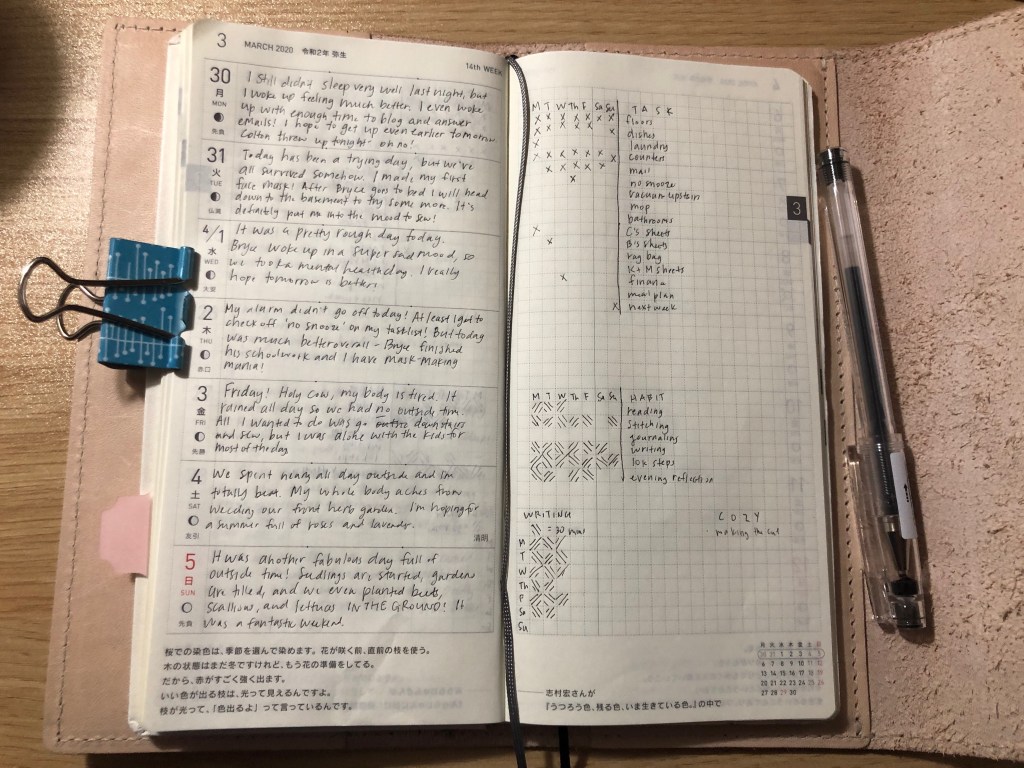 3 MARCH 2020 令和2年 弥生
14th WEEK
30 月 MON 先負
I still didn't sleep very well last night, but
I woke up feeling much better. I even woke
up with enough time to blog and answer
emails! I hope to get up even earlier tomorrow.
Colton threw up tonight - oh no!
31 火 TUE 仏滅
Today has been a trying day, but we've
all survived somehow. I made my first
face mask! After Bryce goes to bed I will head
down to the basement to try some more. It's
definitely put me into the mood to sew!
4/1 水 WED 大安
It was a pretty rough day today.
Bryce woke up in a super sad mood, so
we took a mental health day. I really
hope tomorrow is better.
2 木 THU 赤口
My alarm didn't go off today! At least I get to
check off 'no snooze' on my tasklist! But today
was much better overall - Bryce finished
his schoolwork and I have mask-making
mania!
3 金 FRI 先勝
Friday! Holy cow, my body is tired. It
rained all day so we had no outside time.
All I wanted to do was go outsie downstairs
and sew, but I was alone with the kids for
most of the day
4 土 SAT 友引
We spent nearly all day outside and I'm
totally beat. My whole body aches from
weeding our front herb garden. I'm hoping for
a summer full of roses and lavender.
清明
5 日 SUN 先負
It was another fabulous day full of
outside time! Seedlings are started, gardens
are tilled, and we even planted beets,
scallions, and lettuces IN THE GROUND! It
was a fantastic weekend.
桜での染色は、季節を選んで染めます。花が咲く前、直前の枝を使う。
木の状態はまだ冬ですけれど、もう花の準備をしてる。
だから、赤がすごく強く出ます。
いい色が出る枝は、光って見えるんですよ。
枝が光って、「色出るよ」って言っているんです。
M T W Th F Sa Su TASK
X X X X X X X floors
dishes
laundry
counters
mail
no snooze
vacuum upstairs
mop
bathrooms
C's sheets
B's sheets
rag bag
K+M sheets
finance
meal plan
next week
3
M T W Th F Sa Su HABIT
reading
stitching
journaling
writing
10k steps
evening reflection
WRITING
= 30 min
M
T
W
Th
F
Sa
Su
COZY
making the
月 火 水 木 金 土 日
30 31 1 2 3 4 5
6 7 8 9 10 11 12
13 14 15 16 17 18 19
20 21 22 23 24 25 26
27 28 29 30
志村宏さんが
『うつろう色、残る色、いま生きている色。』の中で